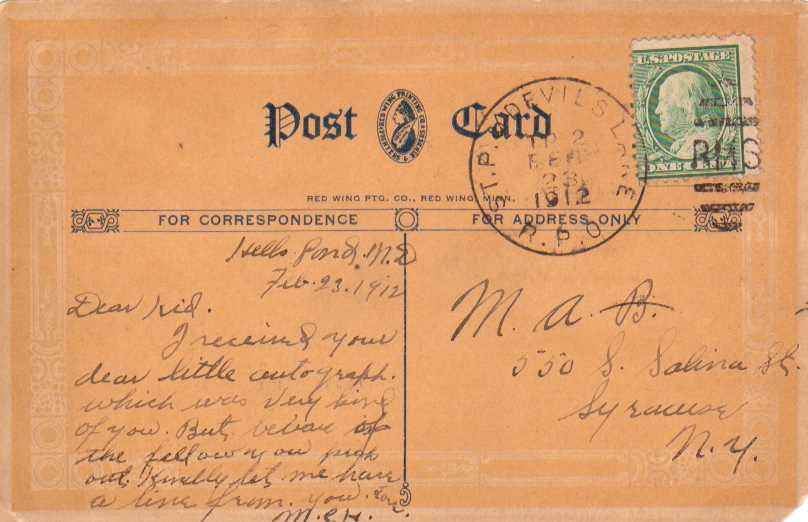 U.S. POSTAGE
ONE CENT
Post Card
ST. P. & DEVILS LAKE
TR 2
FEB
23
1912
R.P.O.
RMS
RED WING PTG. CO., RED WING, MINN.
FOR CORRESPONDENCE
FOR ADDRESS ONLY
Hells Pond, N.D
Feb. 23. 1912
Dear kid.
I received your
dear little autograph.
which was very kind
of you. But, beware of
the fellow you pick
out. Kindly let me have
a line from you.
M.E.H.
M. A. B.
550 S. Salina St.
Syracuse
N.Y.